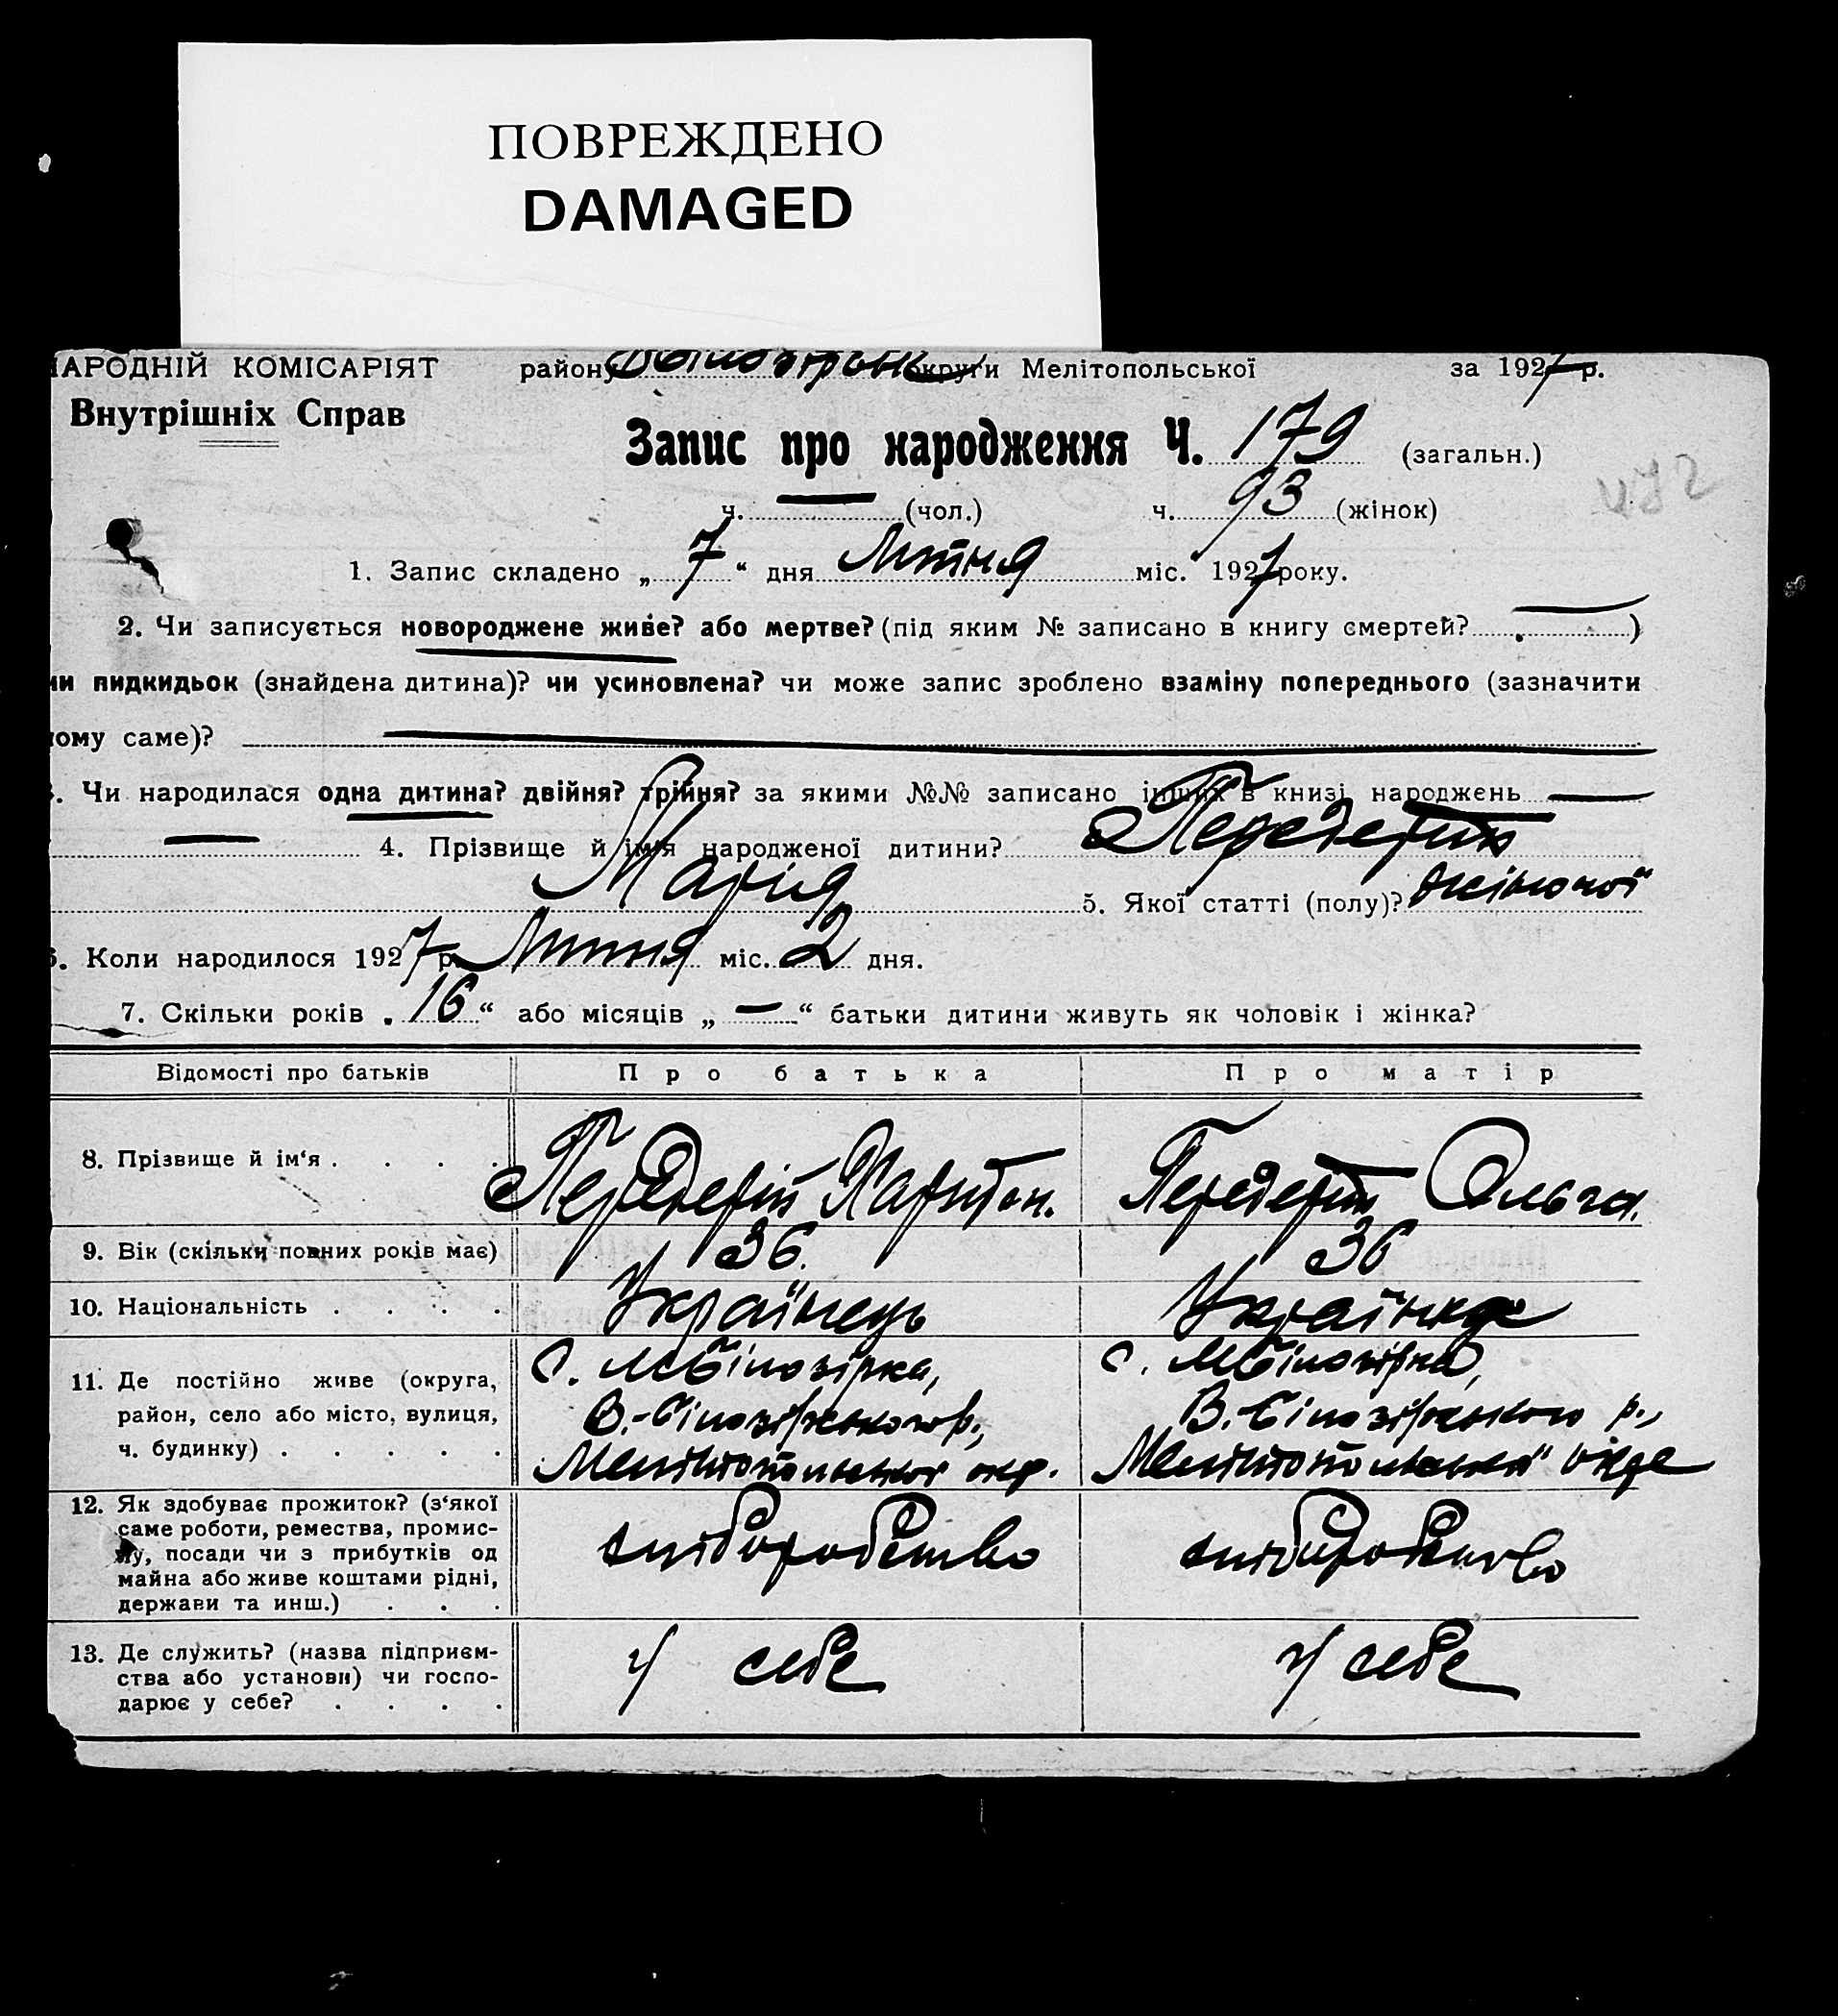 ПОВРЕЖДЕНО
DAMAGED
НАРОДНІЙ КОМІСАРІЯТ району округи Мелітопольської за 1927 р.
Внутрішніх Справ
Запис про народження Ч. 179 (загальн.)
ч. — (чол.) ч. 93 (жінок)
1. Запис складено „7“ дня Лютня міс. 1927 року.
2. Чи записується новороджене живе? або мертве? (під яким № записано в книгу смертей? )
чи пидкидьок (знайдена дитина)? чи усиновлена? чи може запис зроблено взаміну попереднього (зазначити
саме)?
3. Чи народилася одна дитина? двійня? трійня? за якими №№ записано інших в книзі народжень —
— 4. Прізвище й ім'я народженої дитини? Передерій
Марія 5. Якої статті (полу)? жіночої
6. Коли народилося 1927 р. Лютня міс. 2 дня.
7. Скільки років „16“ або місяців „—“ батьки дитини живуть як чоловік і жінка?
Відомості про батьків Про батька Про матір
8. Прізвище й ім'я . . . . Передерій Харитон. Передерій Ольга.
9. Вік (скільки повних років має) 36. 36
10. Національність . . . . Українець Українка
11. Де постійно живе (округа, с. М Білозірка, с. М Білозірка,
район, село або місто, вулиця, В.-Білозірського р., В.-Білозірського р.,
ч. будинку) . . . . . Мелітопольської окр. Мелітопольської
12. Як здобуває прожиток? (з'якої
саме роботи, ремества, промис-
лу, посади чи з прибутків од хліборобство хліборобство
майна або живе коштами рідні,
держави та инш.) . . .
13. Де служить? (назва підприєм-
ства або установи) чи госпо- у себе у себе
дарює у себе? . . . .